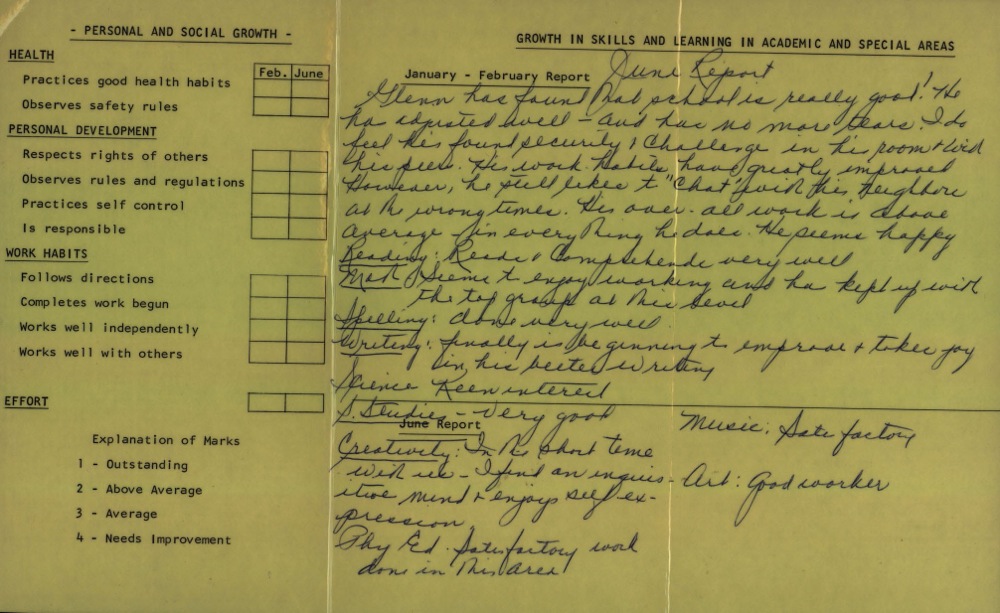 - PERSONAL AND SOCIAL GROWTH -
HEALTH
Feb. June
Practices good health habits
Observes safety rules
PERSONAL DEVELOPMENT
Respects rights of others
Observes rules and regulations
Practices self control
Is responsible
WORK HABITS
Follows directions
Completes work begun
Works well independently
Works well with others
EFFORT
Explanation of Marks
1 - Outstanding
2 - Above Average
3 - Average
4 - Needs Improvement
GROWTH IN SKILLS AND LEARNING IN ACADEMIC AND SPECIAL AREAS
January - February Report June Report
Glenn has found that school is really good! He
has adjusted well - and has no more tears. I do
feel he's found security & challenge in his room & with
his peers. His work habits have greatly improved
However, he still likes to "chat" with his neighbors
at the wrong times. His over-all work is above
average in everything he does. He seems happy
Reading: Reads & Comprehends very well
Math Seems to enjoy working and has kept up with
the top group at this level
Spelling: done very well.
Writing: finally is beginning to improve & takes joy
in his better writing
Science Keen interest
S. Studies - Very good
June Report
Creativity: In the short time
with us - I find an inquis-
itive mind & enjoys self ex-
pression.
Phy Ed. Satisfactory work
done in this area
Music: Satisfactory
Art: Good worker